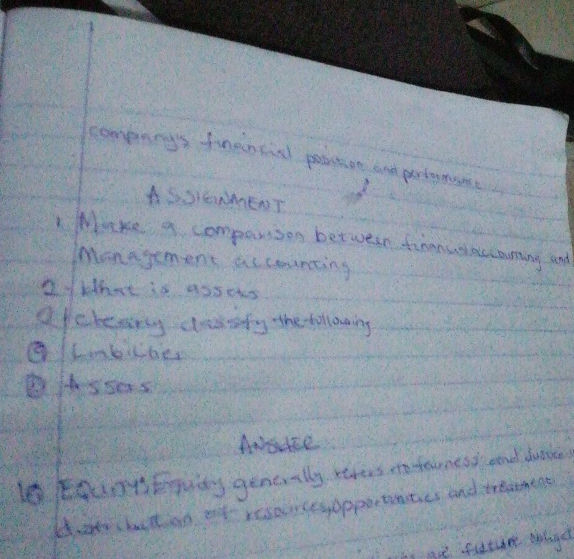 company's financial position and performance
ASSIGNMENT
1. Make a comparison between financial accounting and
Management accounting
2 What is assets
Clearly classify the following
Assets
ANSWER
EQUITY: Equity generally refers to fairness and justice
distribution of resources, opportunities and treatment
future